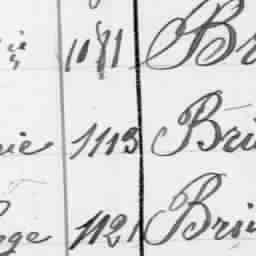 1081 Br
rie 1113 Bri
ge 1121 Bri